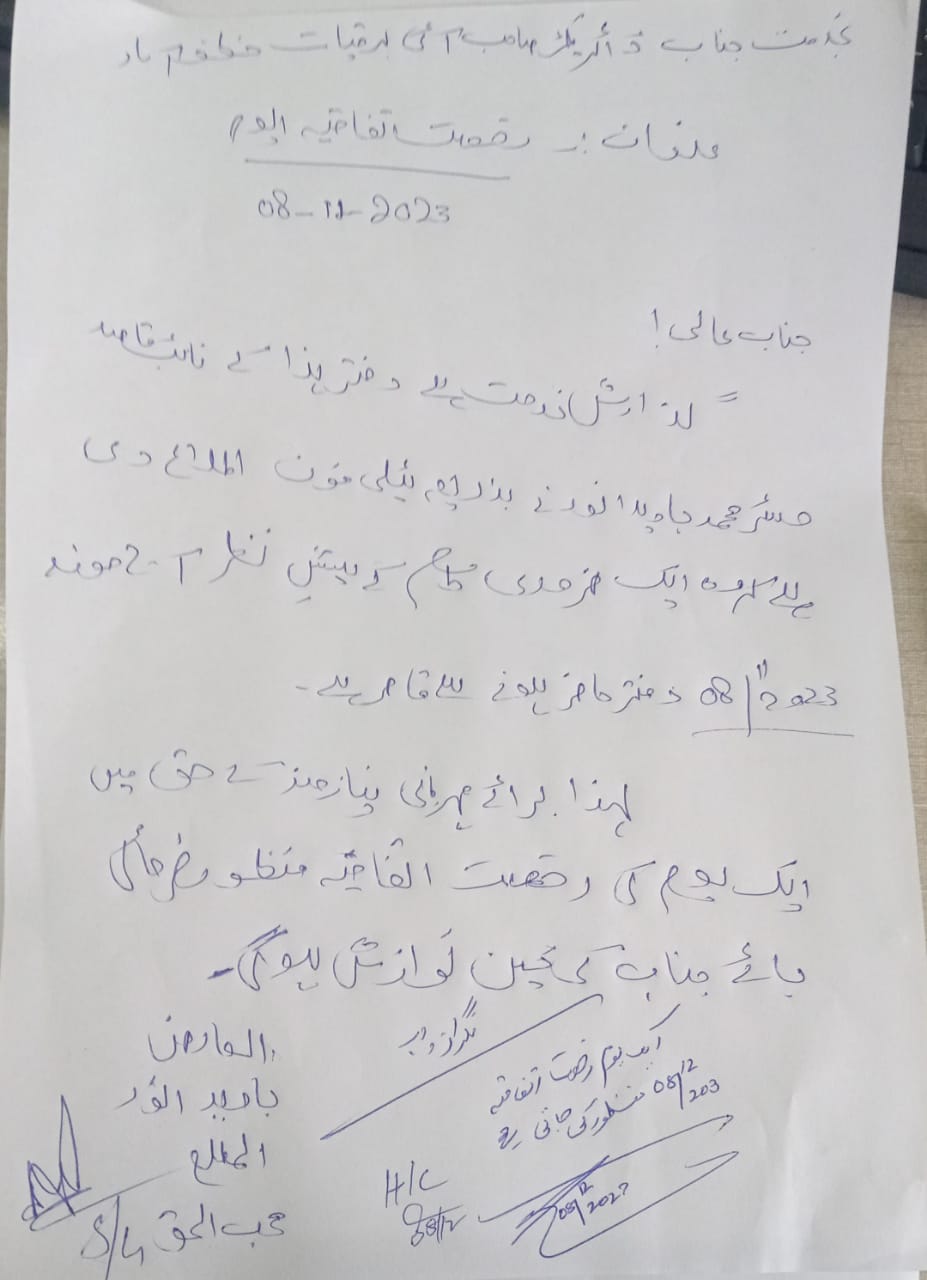 بخدمت جناب ڈائریکٹر صاحب آئی برقیات مظفرآباد
عنوان :۔ رخصت اتفاقیہ ایوم
08-11-2023
جناب عالی !
گذارش خدمت ہے دفتر ہذا کے نائب قاصد
مسٹر محمد جاوید انور نے بذریعہ ٹیلی فون اطلاع دی
ہے کہ وہ ایک ضروری کام کے پیش نظر آج مورخہ
08/11/2023 دفتر حاضر ہونے سے قاصر ہے۔
لہذا برائے مہربانی نیازمند کے حق میں
ایک یوم کی رخصت اتفاقیہ منظور فرمائی
جائے جناب کی عین نوازش ہوگی۔
العارض
جاوید انور
المطلع
محب الحق
ایک یوم رخصت اتفاقیہ
08/12/203 منظور کی جاتی ہے
H/C
08/12
08/12/2023